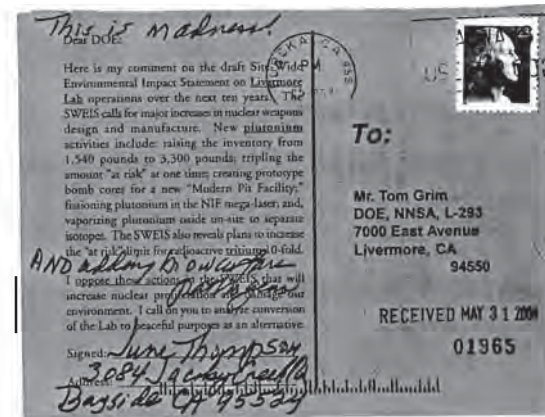 This is madness!
Dear DOE:
Here is my comment on the draft Site Wide
Environmental Impact Statement on Livermore
Lab operations over the next ten years. The
SWEIS calls for major increases in nuclear weapons
design and manufacture. New plutonium
activities include: raising the inventory from
1,540 pounds to 3,300 pounds; tripling the
amount "at risk" at one time; creating prototype
bomb cores for a new "Modern Pit Facility;"
fissioning plutonium in the NIF mega-laser; and,
vaporizing plutonium oxide on-site to separate
isotopes. The SWEIS also reveals plans to increase
the "at risk" limit for radioactive tritium 10-fold.
AND adding Biowarfare
I oppose these actions in the SWEIS that will
increase nuclear proliferation and damage our
environment. I call on you to analyze conversion
of the Lab to peaceful purposes as an alternative.
Signed: June Thompson
Address: 3084 Jacoby Creek Rd
Bayside CA 95524
EUREKA, CA 955
PM
US
To:
Mr. Tom Grim
DOE, NNSA, L-293
7000 East Avenue
Livermore, CA
94550
RECEIVED MAY 31 2004
01965